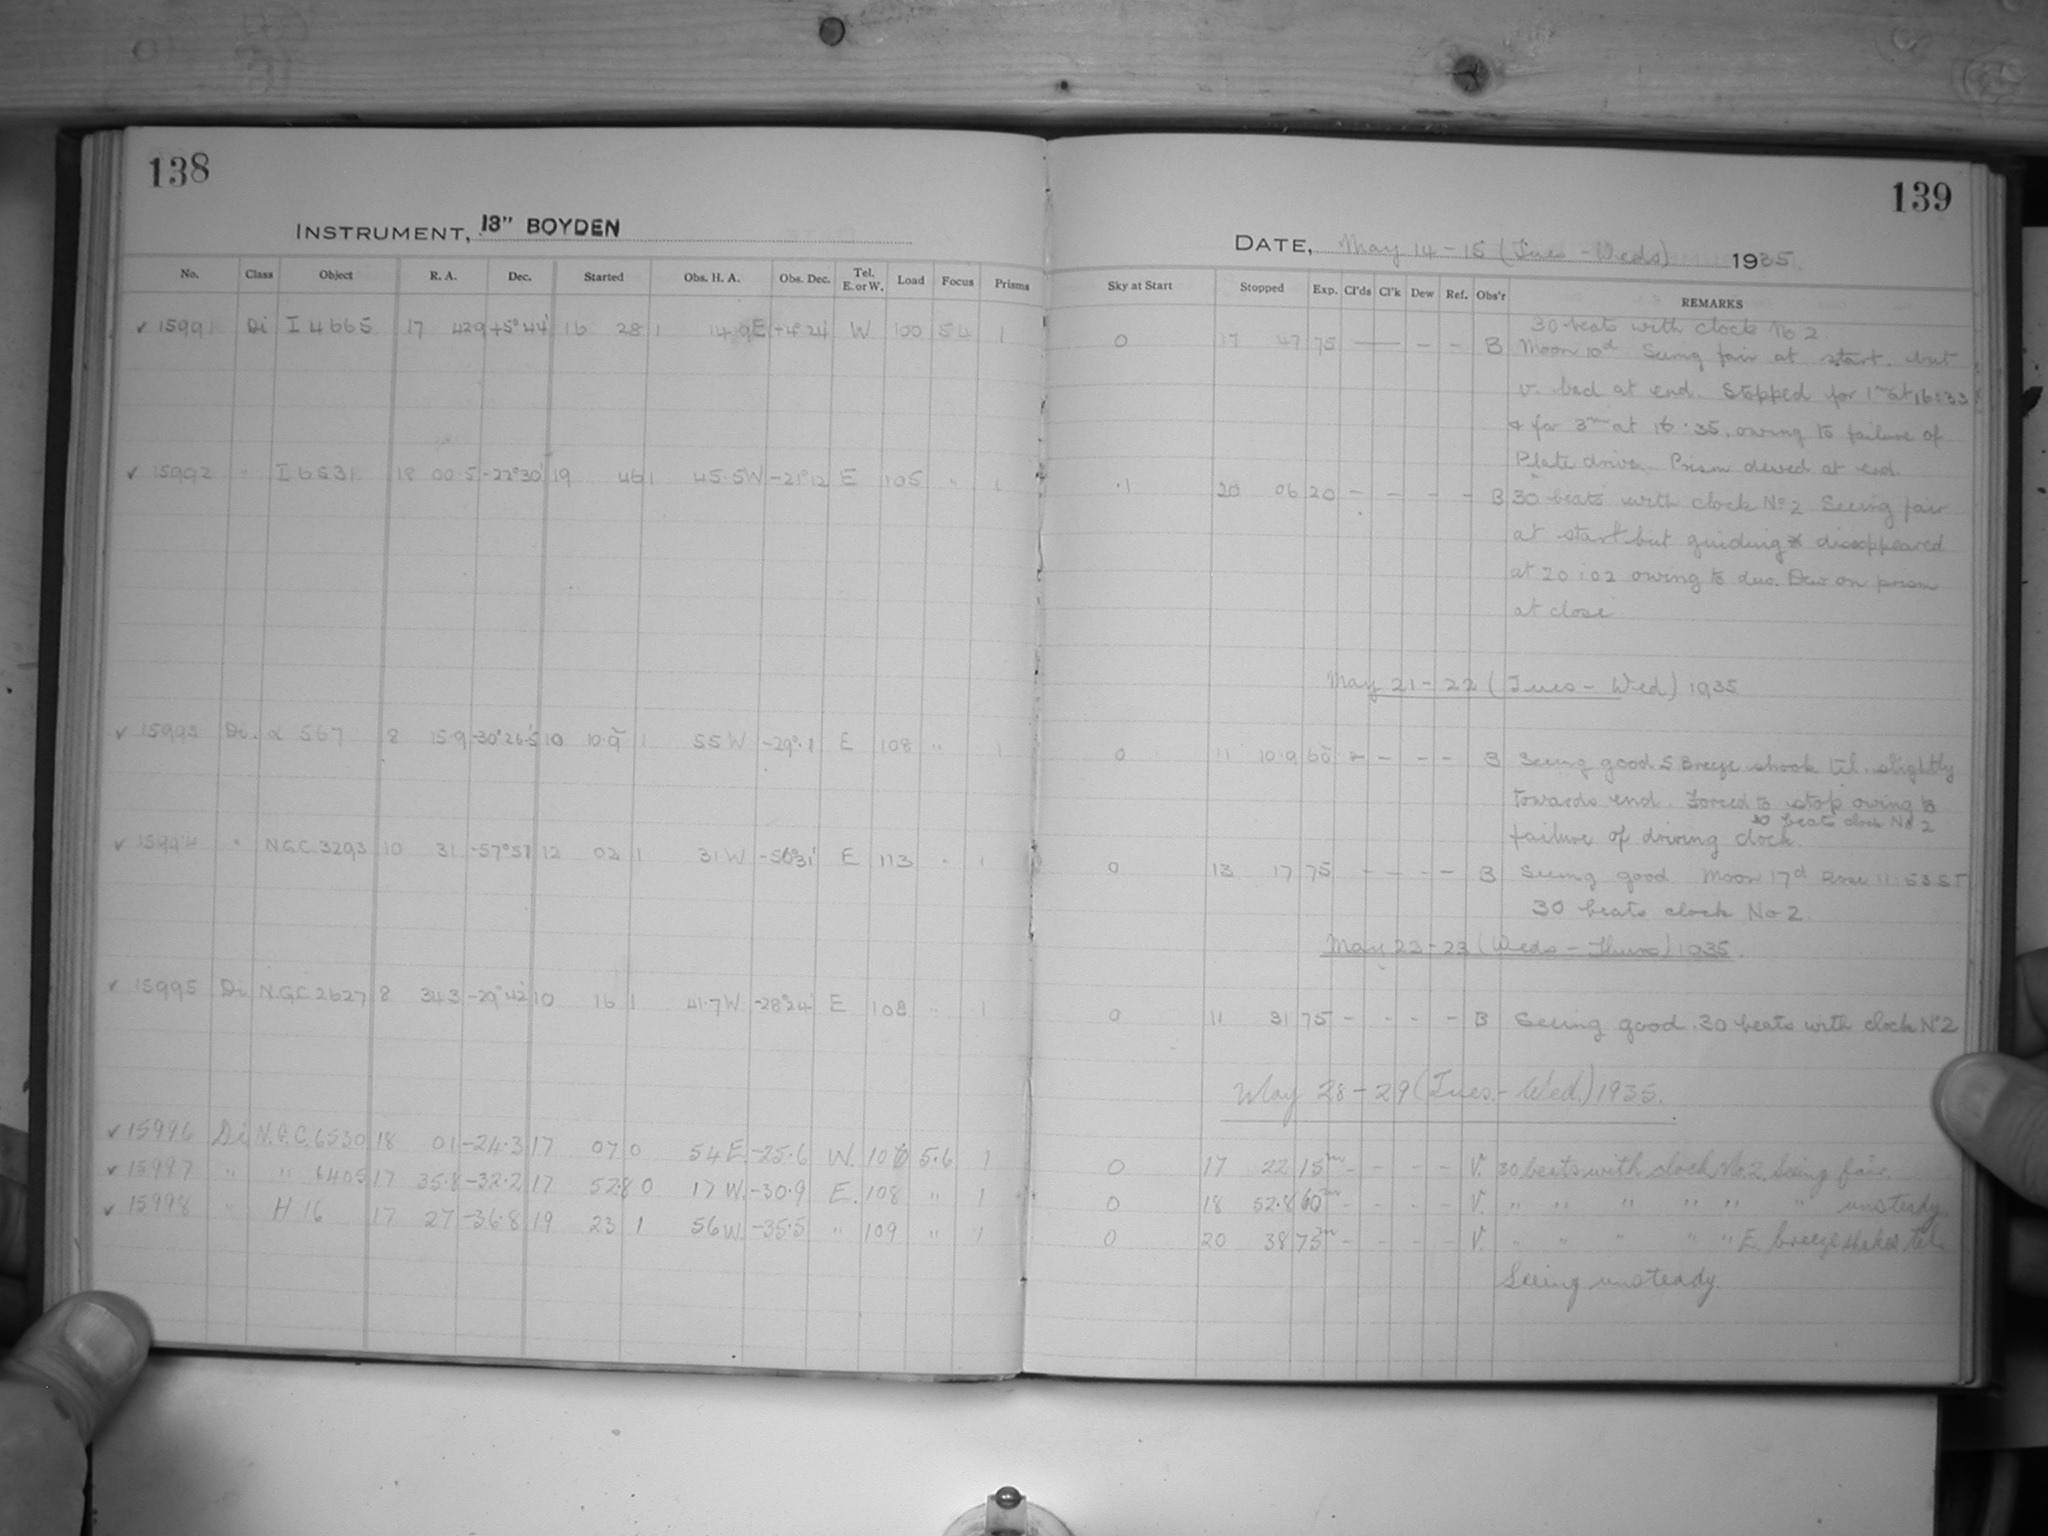 138
INSTRUMENT, 13" BOYDEN
No. Class Object R. A. Dec. Started Obs. H. A. Obs. Dec. Tel. E. or W. Load Focus Prisms
✓ 15991 Di I 4665 17 42.9 +5°44' 16 28 1 14.9E +4°24 W 100 5.4 1
✓ 15992 " I 6531 18 00.5 -22°30' 19 46 1 45.5W -21°12 E 105 " 1
✓ 15993 Di. α 567 8 15.9 -30°26.5 10 10.9 1 55W -29°.1 E 108 " 1
✓ 15994 " N.G.C. 3293 10 31 -57°51 12 02 1 31W -56°31' E 113 " 1
✓ 15995 Di N.G.C 2627 8 34.3 -29°42' 10 16 1 41.7W -28°24' E 108 " 1
✓ 15996 Di N.G.C. 6530 18 01 -24.3 17 07 0 54E. -25.6 W. 106 5.6 1
✓ 15997 " " 6405 17 35.8 -32.2 17 52.8 0 17W. -30.9 E. 108 " 1
✓ 15998 " H 16 17 27 -36.8 19 23 1 56W. -35.5 " 109 " 1
139
DATE, May 14-15 (Tues-Weds) 1935.
Sky at Start Stopped Exp. Cl'ds Cl'k Dew Ref. Obs'r REMARKS
30 beats with clock No 2.
0 17 47 75 — - - B Moon 10d Seeing fair at start. but
v. bad at end. Stopped for 1m at 16:33
& for 3m at 16.35, owing to failure of
Plate driver. Prism dewed at end.
.1 20 06 20 - - - - B 30 beats with clock No 2 Seeing fair
at start but guiding * disappeared
at 20:02 owing to dew. Dew on prism
at close
May 21-22 (Tues-Wed) 1935
0 11 10.9 60 2 - - - B Seeing good S Breeze shook tel. slightly
towards end. Forced to stop owing to
30 beats clock No 2
failure of driving clock.
0 13 17 75 - - - - B Seeing good Moon 17d Rose 11:53 ST
30 beats clock No 2
May 22-23 (Weds-Thurs) 1935.
0 11 31 75 - - - - B Seeing good. 30 beats with clock No 2
May 28-29 (Tues.-Wed.) 1935.
0 17 22 15m - - - - V. 30 beats with clock No. 2. Seeing fair.
0 18 52.8 60m - - - - V. " " " " " " unsteady.
0 20 38 75m - - - - V. " " " " " E. breeze shakes tel.
Seeing unsteady.